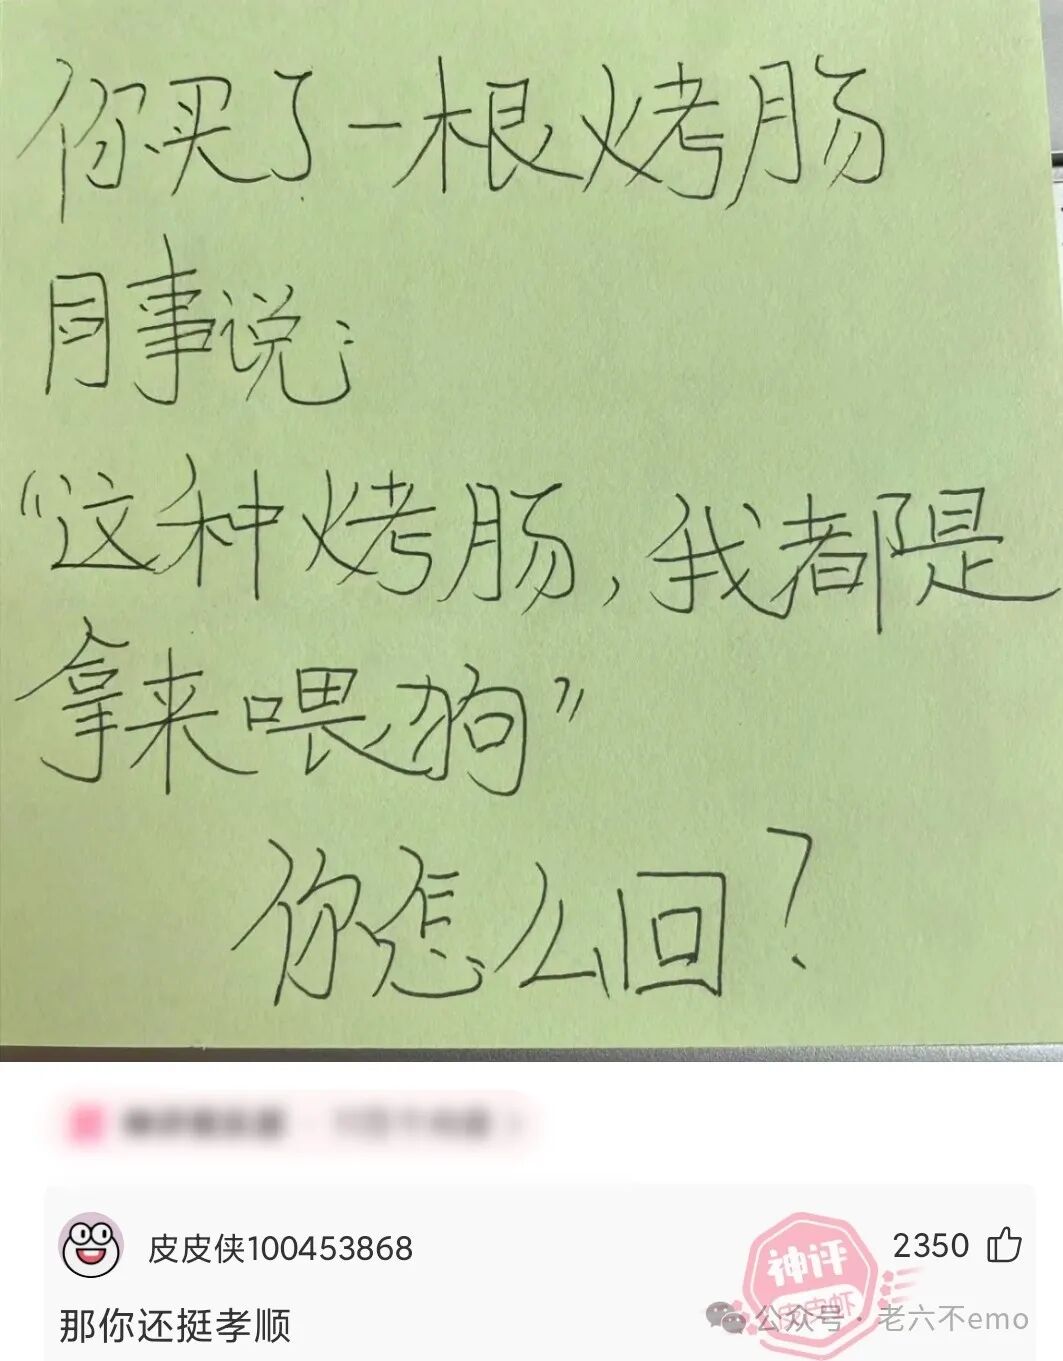 你买了一根烤肠
同事说：
“这种烤肠，我都是
拿来喂狗”
你怎么回？
皮皮侠100453868
神评
皮皮虾
2350
那你还挺孝顺
公众号·老六不emo